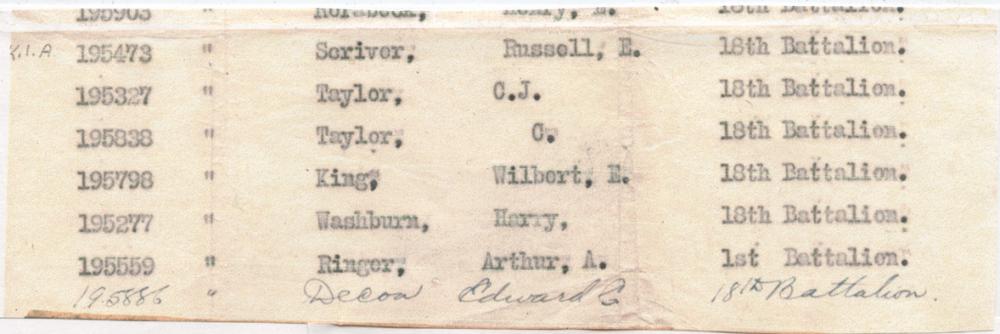 195903 " Korabeck, Henry, E. 18th Battalion.
K.I.A 195473 " Scriver, Russell, E. 18th Battalion.
195327 " Taylor, C.J. 18th Battalion.
195838 " Taylor, C. 18th Battalion.
195798 " King, Wilbert, E. 18th Battalion.
195277 " Washburn, Harry, 18th Battalion.
195559 " Ringer, Arthur, A. 1st Battalion.
195886 " Decon Edward C 18th Battalion.